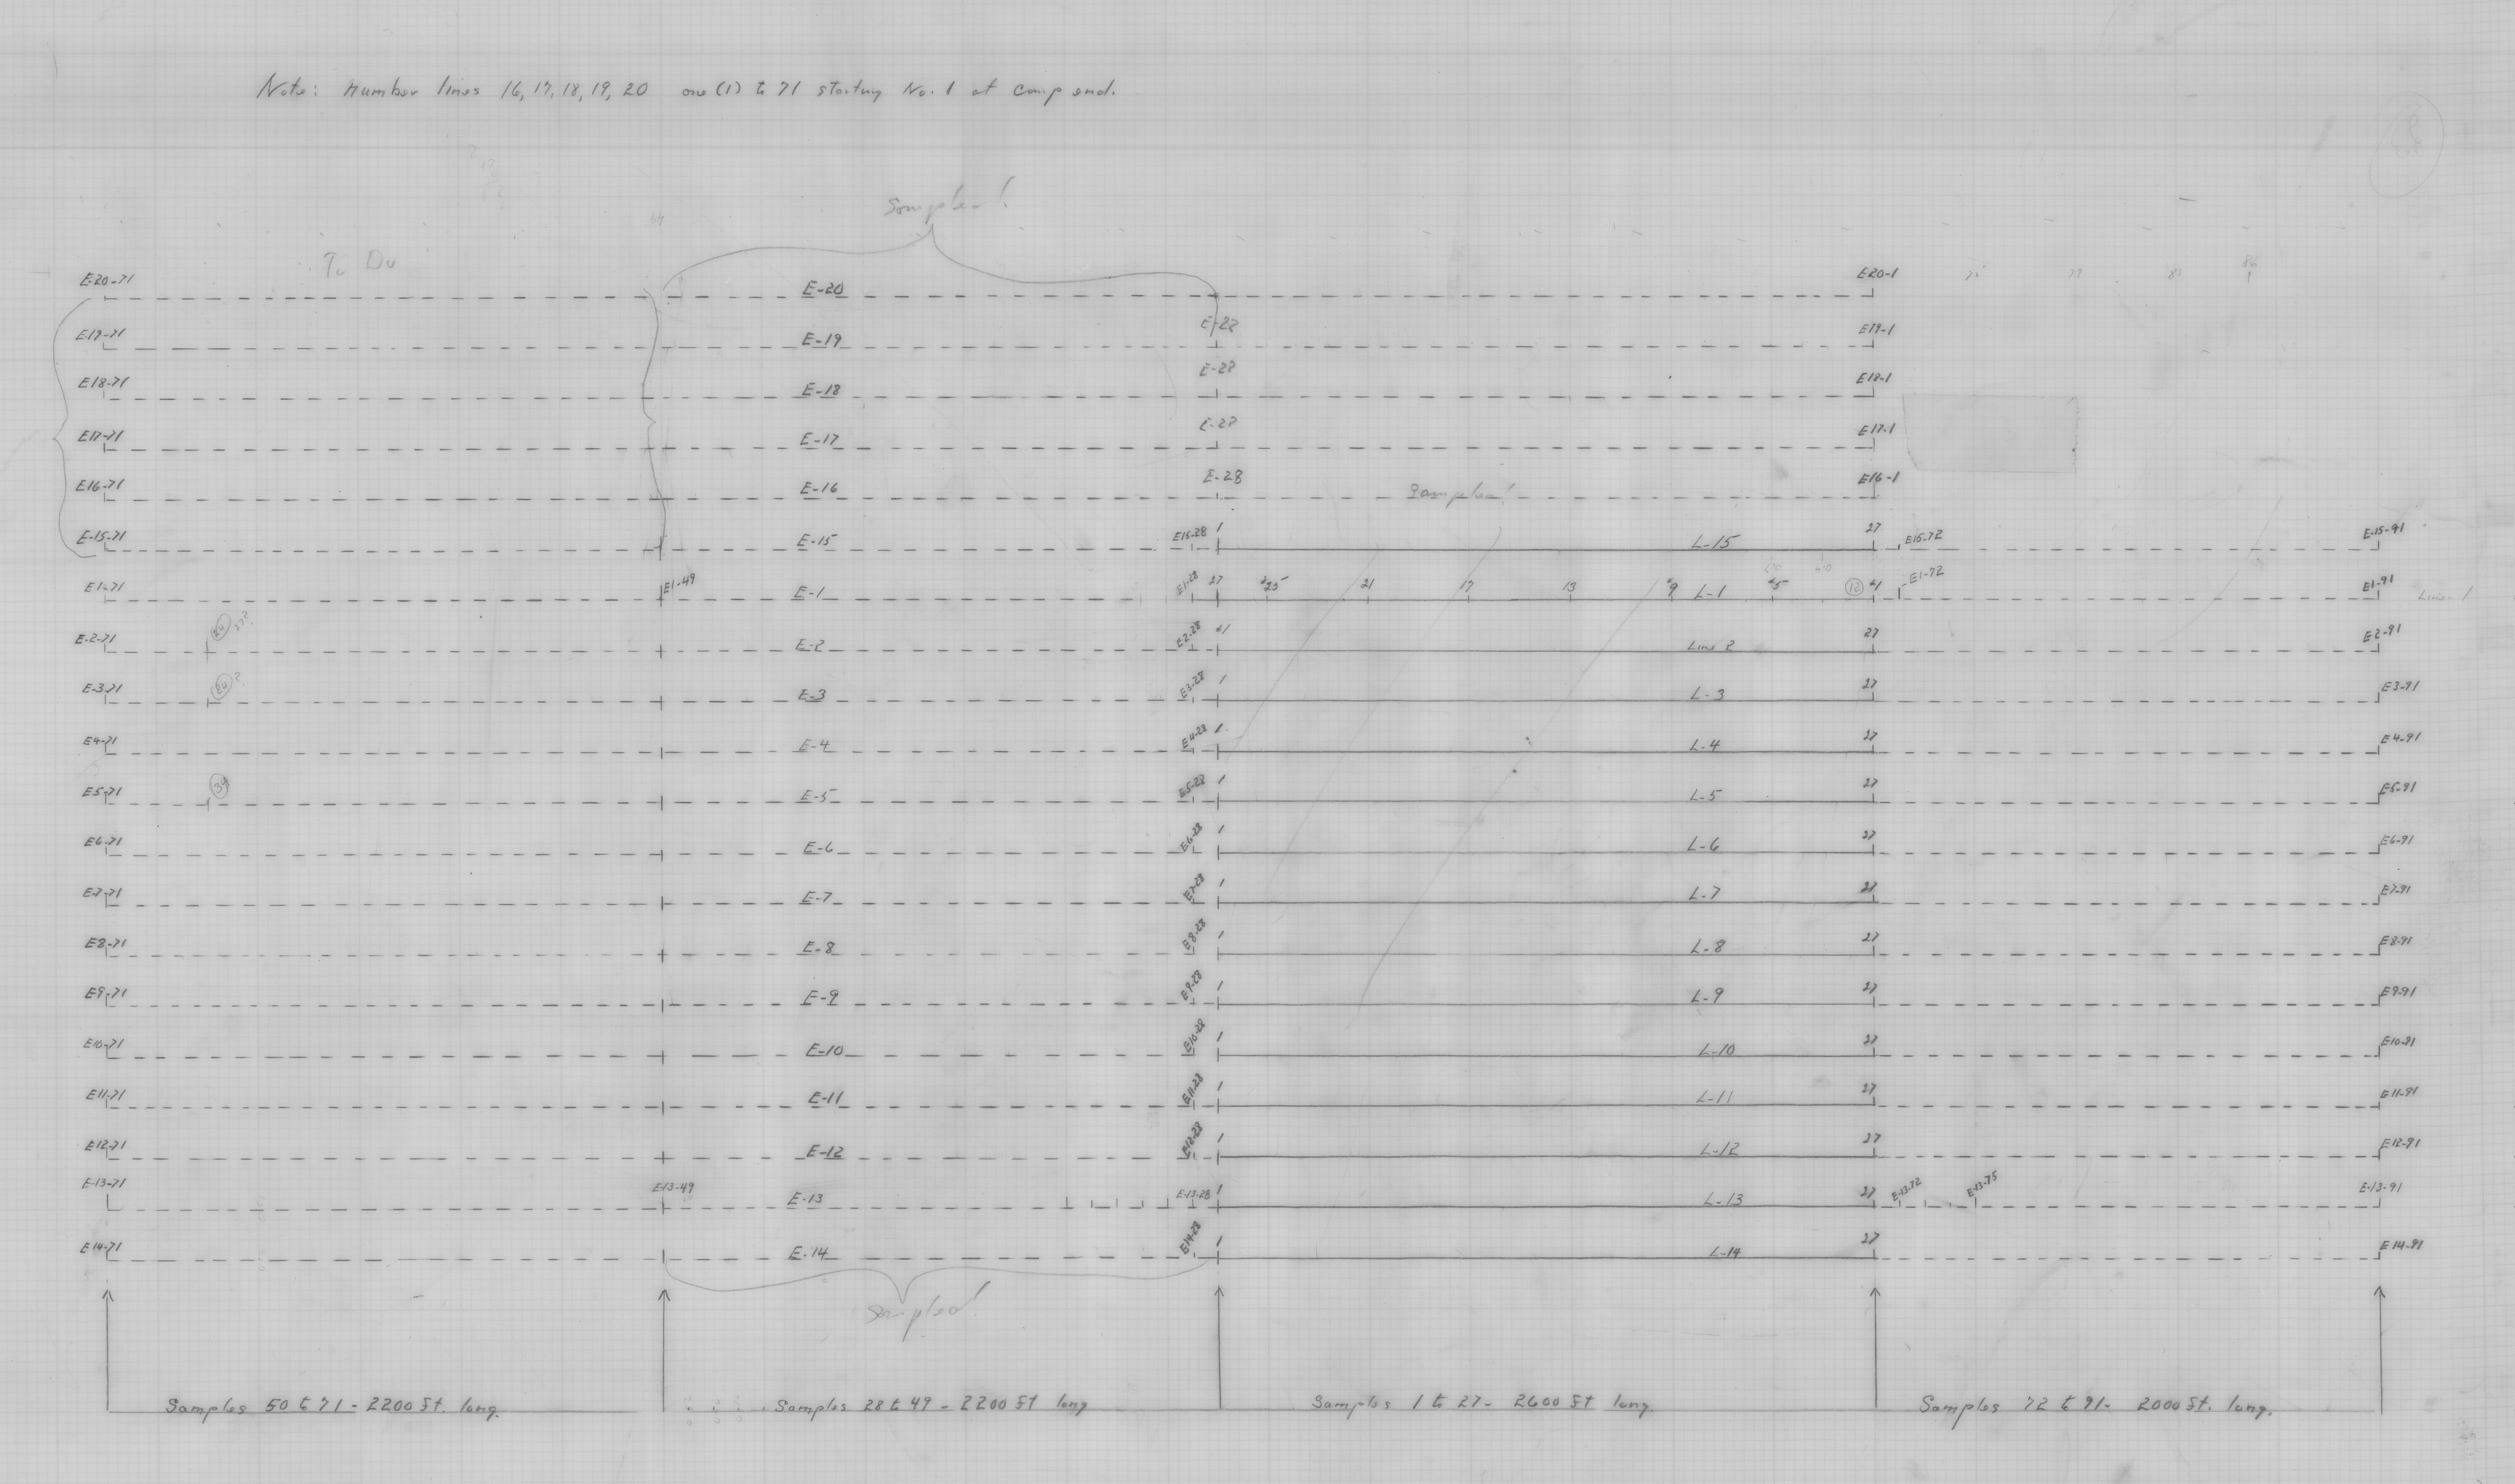 Note: Number lines 16, 17, 18, 19, 20 one (1) to 71 starting No. 1 at camp end.
Sampled!
To Do
E-20-71 E-20 E20-1 75 79 83 86
E19-71 E-19 E-28 E19-1
E18-71 E-18 E-28 E18-1
E17-71 E-17 E-28 E17-1
E16-71 E-16 E-28 Sampled! E16-1
E-15-71 E-15 E15-28 1 L-15 27 E15-72 E-15-91
E1-71 E1-49 E-1 E1-28 27 #25 21 17 13 #9 L-1 #5 12 #1 E1-72 E1-91 Line-1
E-2-71 24 E-2 E-2-28 #1 Line 2 27 E2-91
E-3-71 24? E-3 E3-28 1 L-3 27 E3-91
E4-71 E-4 E4-28 1 L-4 27 E4-91
E5-71 34 E-5 E5-28 1 L-5 27 E5-91
E6-71 E-6 E6-28 1 L-6 27 E6-91
E-7-71 E-7 E7-28 1 L-7 27 E7-91
E8-71 E-8 E8-28 1 L-8 27 E8-91
E9-71 E-9 E9-28 1 L-9 27 E9-91
E10-71 E-10 E10-28 1 L-10 27 E10-91
E11-71 E-11 E11-28 1 L-11 27 E11-91
E12-71 E-12 E12-28 1 L-12 27 E12-91
E-13-71 E-13-49 E-13 E-13-28 1 L-13 27 E-13-72 E-13-75 E-13-91
E14-71 E-14 E14-28 1 L-14 27 E14-91
Sampled!
Samples 50 to 71 - 2200 ft. long.
Samples 28 to 49 - 2200 ft long
Samples 1 to 27 - 2600 ft long.
Samples 72 to 91 - 2000 ft. long.